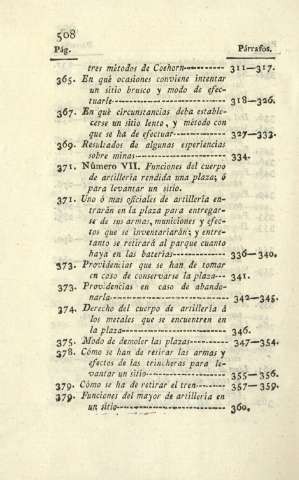 508
Pág. Párrafos.
tres métodos de Coehorn---------- 311—317.
365. En qué ocasiones conviene intentar
un sitio brusco y modo de efec-
tuarle---------------------------- 318—326.
367. En qué circunstancias deba estable-
cerse un sitio lento, y método con
que se ha de efectuar-------------- 327—333.
369. Resultados de algunas esperiencias
sobre minas---------------------- 334.
371. Número VII. Funciones del cuerpo
de artilleria rendida una plaza; ó
para levantar un sitio.
371. Uno ó mas oficiales de artilleria en-
trarán en la plaza para entregar-
se de sus armas, municiones y efec-
tos que se inventariarán; y entre-
tanto se retirará al parque cuanto
haya en las baterías-------------- 336—340.
373. Providencias que se han de tomar
en caso de conservarse la plaza--- 341.
373. Providencias en caso de abando-
narla---------------------------- 342—345.
374. Derecho del cuerpo de artilleria á
los metales que se encuentren en
la plaza-------------------------- 346.
375. Modo de demoler las plazas---------- 347—354.
378. Cómo se han de retirar las armas y
efectos de las trincheras para le-
vantar un sitio-------------------- 355—356.
379. Cómo se ha de retirar el tren-------- 357—359.
379. Funciones del mayor de artilleria en
un sitio-------------------------- 360.